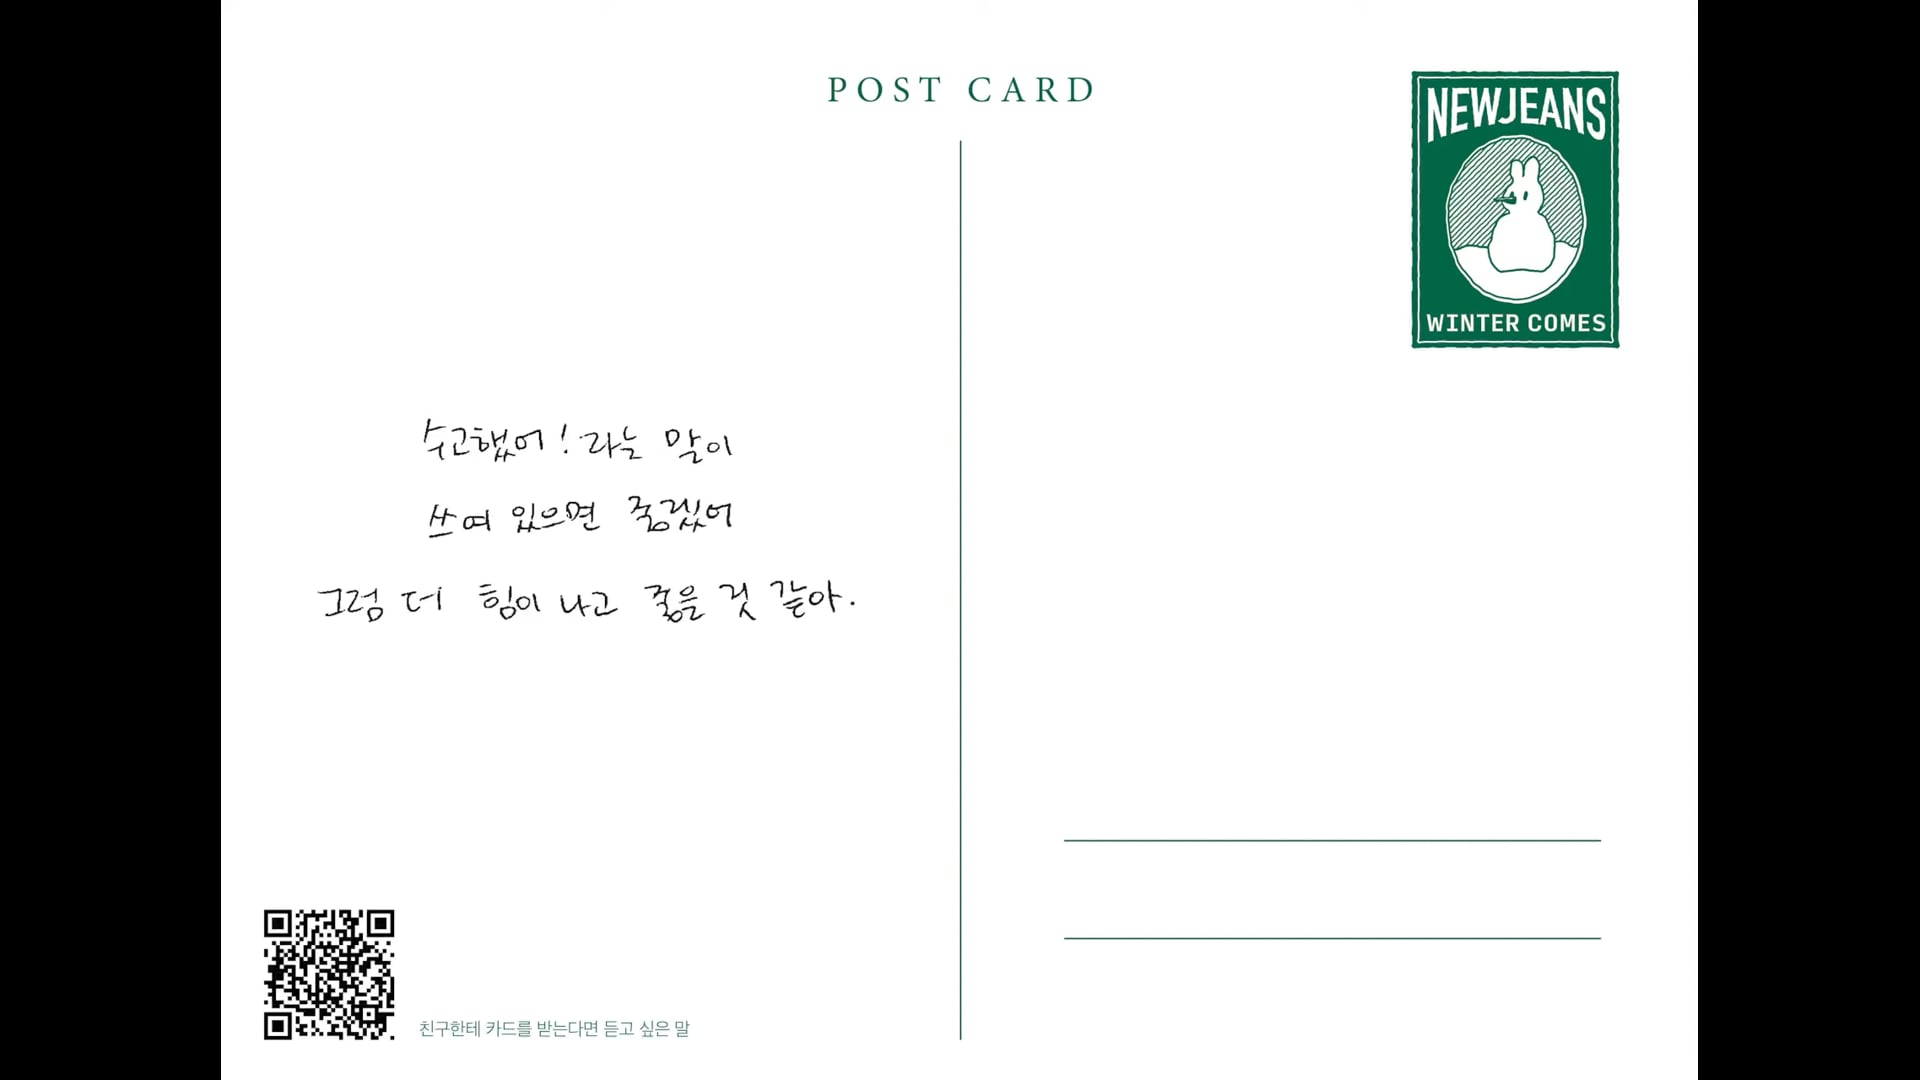 POST CARD
NEWJEANS
WINTER COMES
수고했어! 라는 말이
쓰여 있으면 좋겠어
그럼 더 힘이 나고 좋을 것 같아.
친구한테 카드를 받는다면 듣고 싶은 말